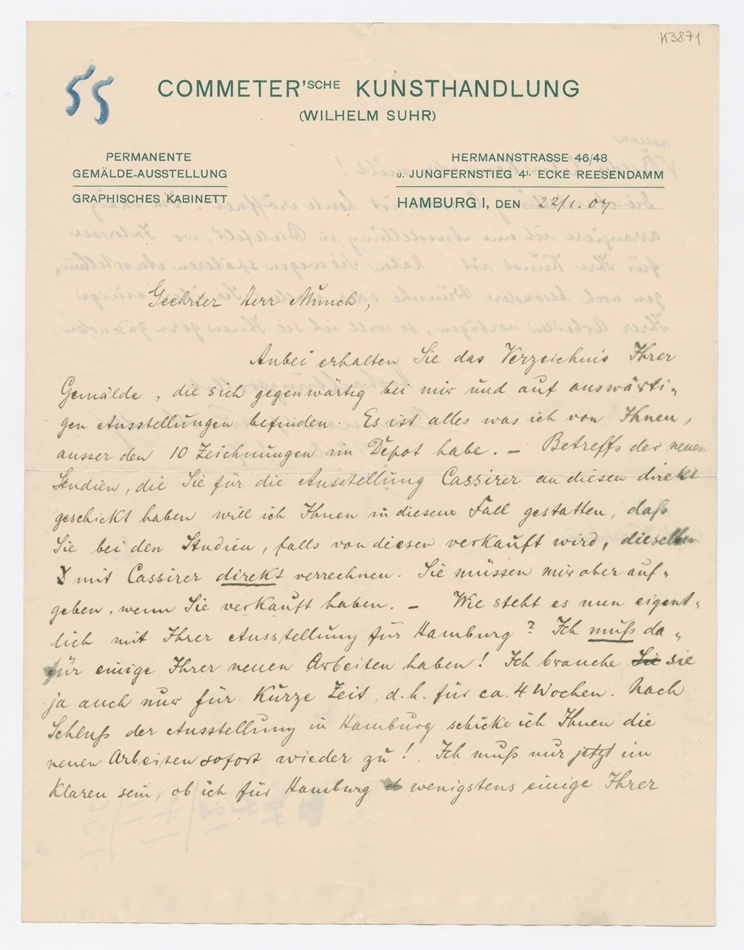 K3871
55
COMMETER'SCHE KUNSTHANDLUNG
(WILHELM SUHR)
PERMANENTE
GEMÄLDE-AUSSTELLUNG
GRAPHISCHES KABINETT
HERMANNSTRASSE 46/48
U. JUNGFERNSTIEG 4I. ECKE REESENDAMM
HAMBURG I, DEN 22/1. 07
Geehrter Herr Munch,
Anbei erhalten Sie das Verzeichnis Ihrer
Gemälde, die sich gegenwärtig bei mir und auf auswärti-
gen Ausstellungen befinden. Es ist alles was ich von Ihnen,
ausser den 10 Zeichnungen im Depot habe. – Betreffs der neuen
Studien, die Sie für die Ausstellung Cassirer an diesen direkt
geschickt haben will ich Ihnen in diesem Fall gestatten, daß
Sie bei den Studien, falls von diesen verkauft wird, dieselben
mit Cassirer direkt verrechnen. Sie müssen mir aber auf-
geben, wenn Sie verkauft haben. – Wie steht es nun eigent-
lich mit Ihrer Ausstellung für Hamburg? Ich muß da-
für einige Ihrer neuen Arbeiten haben! Ich brauche Sie sie
ja auch nur für kurze Zeit, d.h. für ca. 4 Wochen. Nach
Schluß der Ausstellung in Hamburg schicke ich Ihnen die
neuen Arbeiten sofort wieder zu! Ich muß nur jetzt im
Klaren sein, ob ich für Hamburg wenigstens einige Ihrer